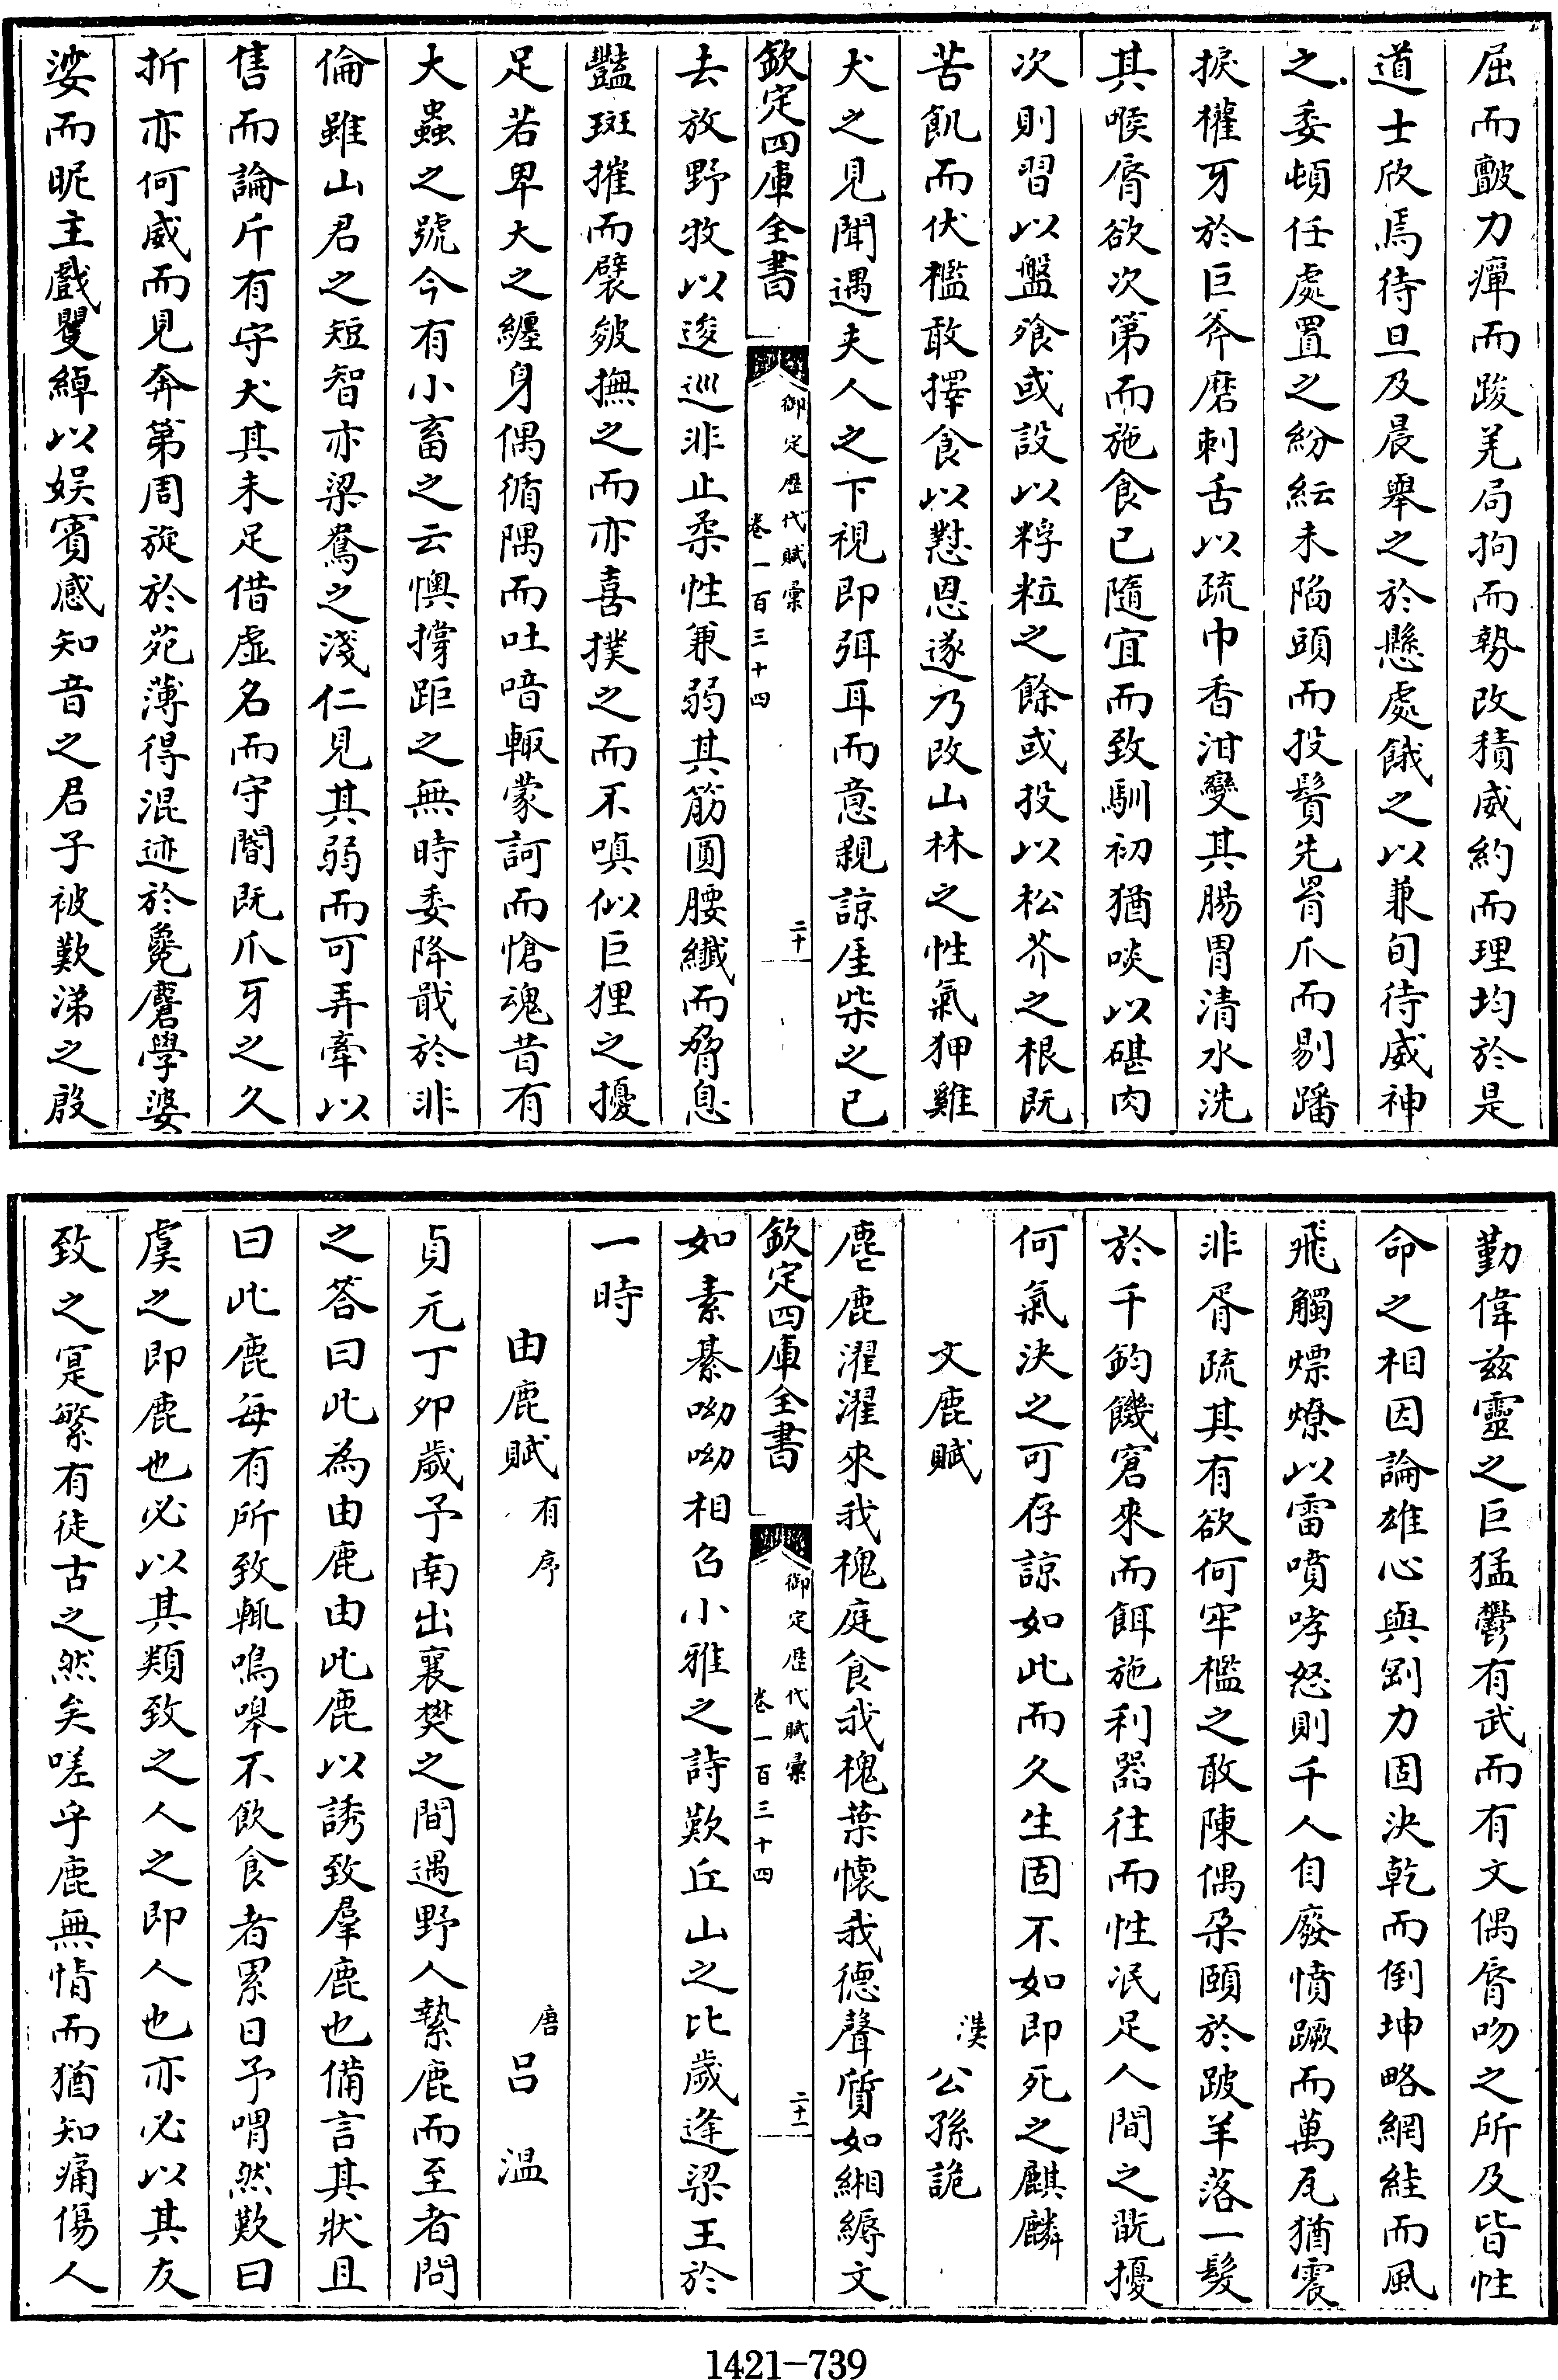 屈而斅力痺而踆羌局拘而勢改積威約而理均於是
道士欣焉待旦及晨舉之於懸處餓之以兼旬待威神
之委頓任處置之紛紜未陷頭而投鬢先罥爪而剔蹯
捩欋牙於巨斧磨刺舌以疏巾香泔變其腸胃清水洗
其喉脣欲次第而施食已隨宜而致馴初猶啖以碪肉
次則習以盤飱或設以稃粒之餘或投以松芥之根既
苦飢而伏檻敢擇食以懟恩遂乃改山林之性氣狎雞
犬之見聞遇夫人之下視即弭耳而意親諒厓柴之已
欽定四庫全書
御定歷代賦彙
卷一百三十四
二十
去放野牧以逡巡非止柔性兼弱其筋圓腰纖而脅息
豔斑摧而襞皴撫之而亦喜撲之而不嗔似巨狸之擾
足若卑犬之纏身偶循隅而吐音喑輒蒙訶而愴魂昔有
大蟲之號今有小畜之云懊撐距之無時委降戢於非
倫雖山君之短智亦梁鴦之淺仁見其弱而可弄牽以
售而論斤有守犬其未足借虛名而守閽既爪牙之久
折亦何威而見奔第周旋於苑薄得混迹於毚麏學婆
娑而昵主戲矍綽以娱賓感知音之君子被歎涕之殷
勤偉兹靈之巨猛鬱有武而有文偶脣吻之所及皆性
命之相因論雄心與剛力固決乾而倒坤略網絓而風
飛觸熛燎以雷噴哮怒則千人自廢憤蹶而萬瓦猶震
非胥疏其有欲何牢檻之敢陳偶朵頤於跛羊落一髪
於千鈞饑窘來而餌施利器往而性泯足人間之翫擾
何氣決之可存諒如此而久生固不如即死之麒麟
文鹿賦
漢 公孫詭
麀鹿濯濯來我槐庭食我槐葉懷我德聲質如緗縟文
欽定四庫全書
御定歷代賦彙
卷一百三十四
二十一
如素綦呦呦相召小雅之詩歎丘山之比歲逢梁王於
一時
由鹿賦 有序
唐 吕溫
貞元丁卯歲予南出襄樊之間遇野人縶鹿而至者問
之答曰此為由鹿由此鹿以誘致羣鹿也備言其狀且
曰此鹿每有所致輒鳴嘷不飲食者累日予喟然歎曰
虞之即鹿也必以其類致之人之即人也亦必以其友
致之寔繁有徒古之然矣嗟乎鹿無情而猶知痛傷人
1421-739